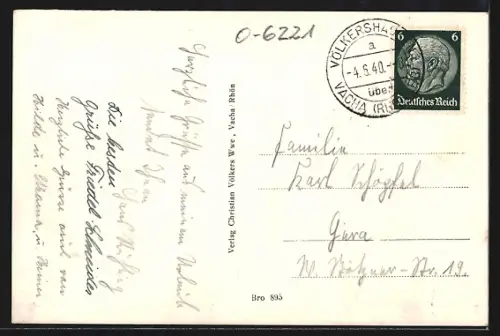 O-6221
VÖLKERSHAUSEN
a
-4.6.40.-
über
VACHA (RHÖN)
6 6
Deutsches Reich
Herzliche Grüße aus meinem Urlaub
sendet Ihnen
Die besten
Grüße
Herzliche Grüsse auch von
Hilde u. Mama, u. Heiner.
Verlag Christian Völkers Wwe., Vacha/Rhön
Familie
Karl Schöpfel
Gera
W. Bötzner-Str. 19.
Bro 895